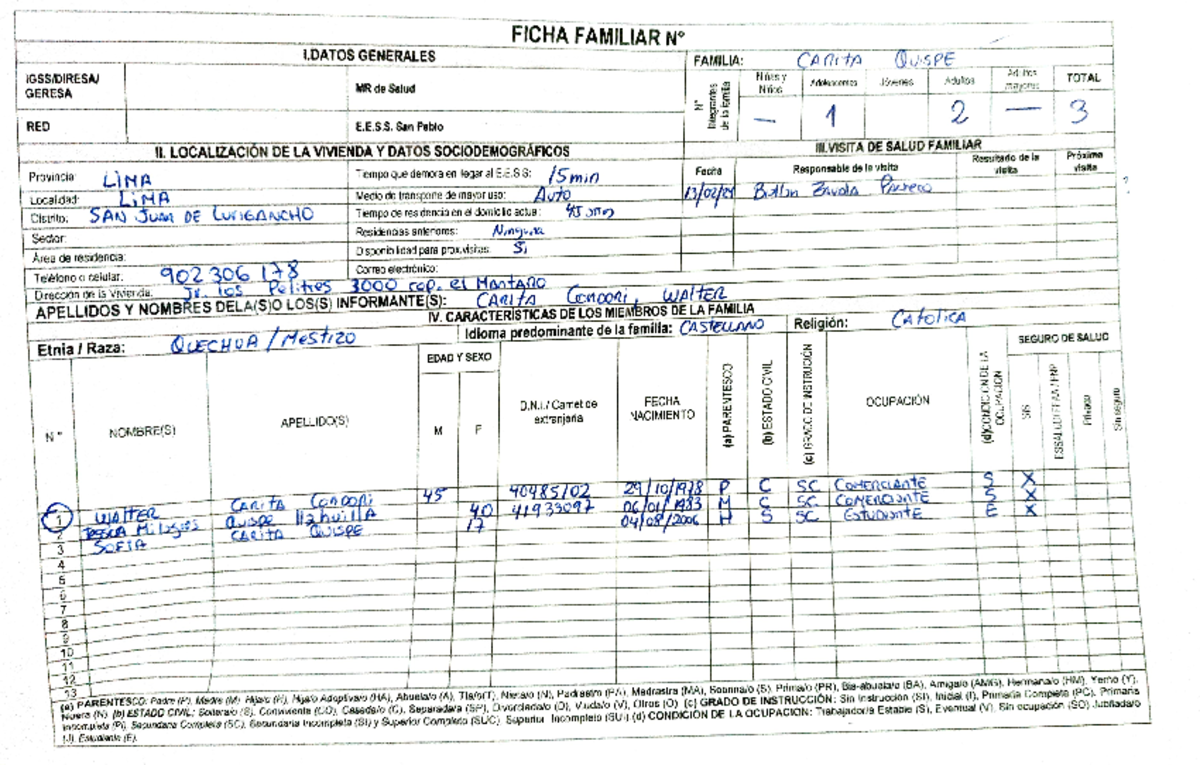 FICHA FAMILIAR N°
I.DATOS GENERALES
FAMILIA: CARITA QUISPE
IGSS/DIRESA/
GERESA
MR de Salud
N° Integrantes de la familia
Niños y Niñas
Adolescentes
Jóvenes
Adultos
Adultos mayores
TOTAL
— 1 2 — 3
RED
E.E.S.S. San Pablo
II. LOCALIZACIÓN DE LA VIVIENDA Y DATOS SOCIODEMOGRÁFICOS
III.VISITA DE SALUD FAMILIAR
Provincia: LIMA
Tiempo que demora en llegar al E.E.S.S: 15min
Fecha
Responsable de la visita
Resultado de la visita
Próxima visita
Localidad: LIMA
Medio de transporte de mayor uso: Auto
13/02/24
Distrito: SAN JUAN DE LURIGANCHO
Tiempo de residencia en el domicilio actual: 45 años
Sector:
Residencias anteriores: Ninguna
Área de residencia:
Disponibilidad para prox.visitas: Si
Teléfono o celular: 902 306 178
Correo electrónico:
Dirección de la Vivienda: Jr. los Pelitres 3000 cop. el Mantaro
APELLIDOS Y NOMBRES DELA(S)O LOS(S) INFORMANTE(S): CARITA CONDORI, WALTER
IV. CARACTERÍSTICAS DE LOS MIEMBROS DE LA FAMILIA
Etnia / Raza: QUECHUA / MESTIZO
Idioma predominante de la familia: CASTELLANO
Religión: CATOLICA
N°
NOMBRE(S)
APELLIDO(S)
EDAD Y SEXO
M
F
D.N.I./ Carnet de extranjeria
FECHA NACIMIENTO
(a) PARENTESCO
(b) ESTADO CIVIL
(c) GRADO DE INSTRUCIÓN
OCUPACIÓN
(d)CONDICIÓN DE LA OCUPACIÓN
SEGURO DE SALUD
SIS
Privado
Sin seguro
1 WALTER CARITA CONDORI 45 40485102 29/10/1978 P C SC COMERCIANTE S X
2 Milagros QUISPE 40 41933097 06/01/1983 M C SC COMERCIANTE S X
3 SOFIA CARITA QUISPE 17 04/08/2006 H S SC ESTUDIANTE E X
4
5
6
7
8
9
10
11
12
13
(a) PARENTESCO: Padre (P), Madre (M), Hija/o (H), Hija/o Adoptiva/o (HA), Abuela/o (A), Tía/o(T), Nieta/o (N), Padrastro (PA), Madrastra (MA), Sobrina/o (S), Prima/o (PR), Bis-abuela/o (BA), Amiga/o (AMG), Hermana/o (HM), Yerno (Y),
Nuera (N). (b) ESTADO CIVIL: Soltera/o (S), Conviviente (CO), Casada/o (C), Separada/a (SP), Divorciada/o (D), Viuda/o (V), Otros (O). (c) GRADO DE INSTRUCCIÓN: Sin Instrucción (SI), Inicial (I), Primaria Completa (PC), Primaria
Incompleta (PI), Secundaria Completa (SC), Secundaria Incompleta (SI) y Superior Completa (SUC), Superior Incompleto (SUI) (d) CONDICIÓN DE LA OCUPACION: Trabajador/a Estable (S), Eventual (V), Sin ocupación (SO) Jubilada/o
(J), Estudiante (E).